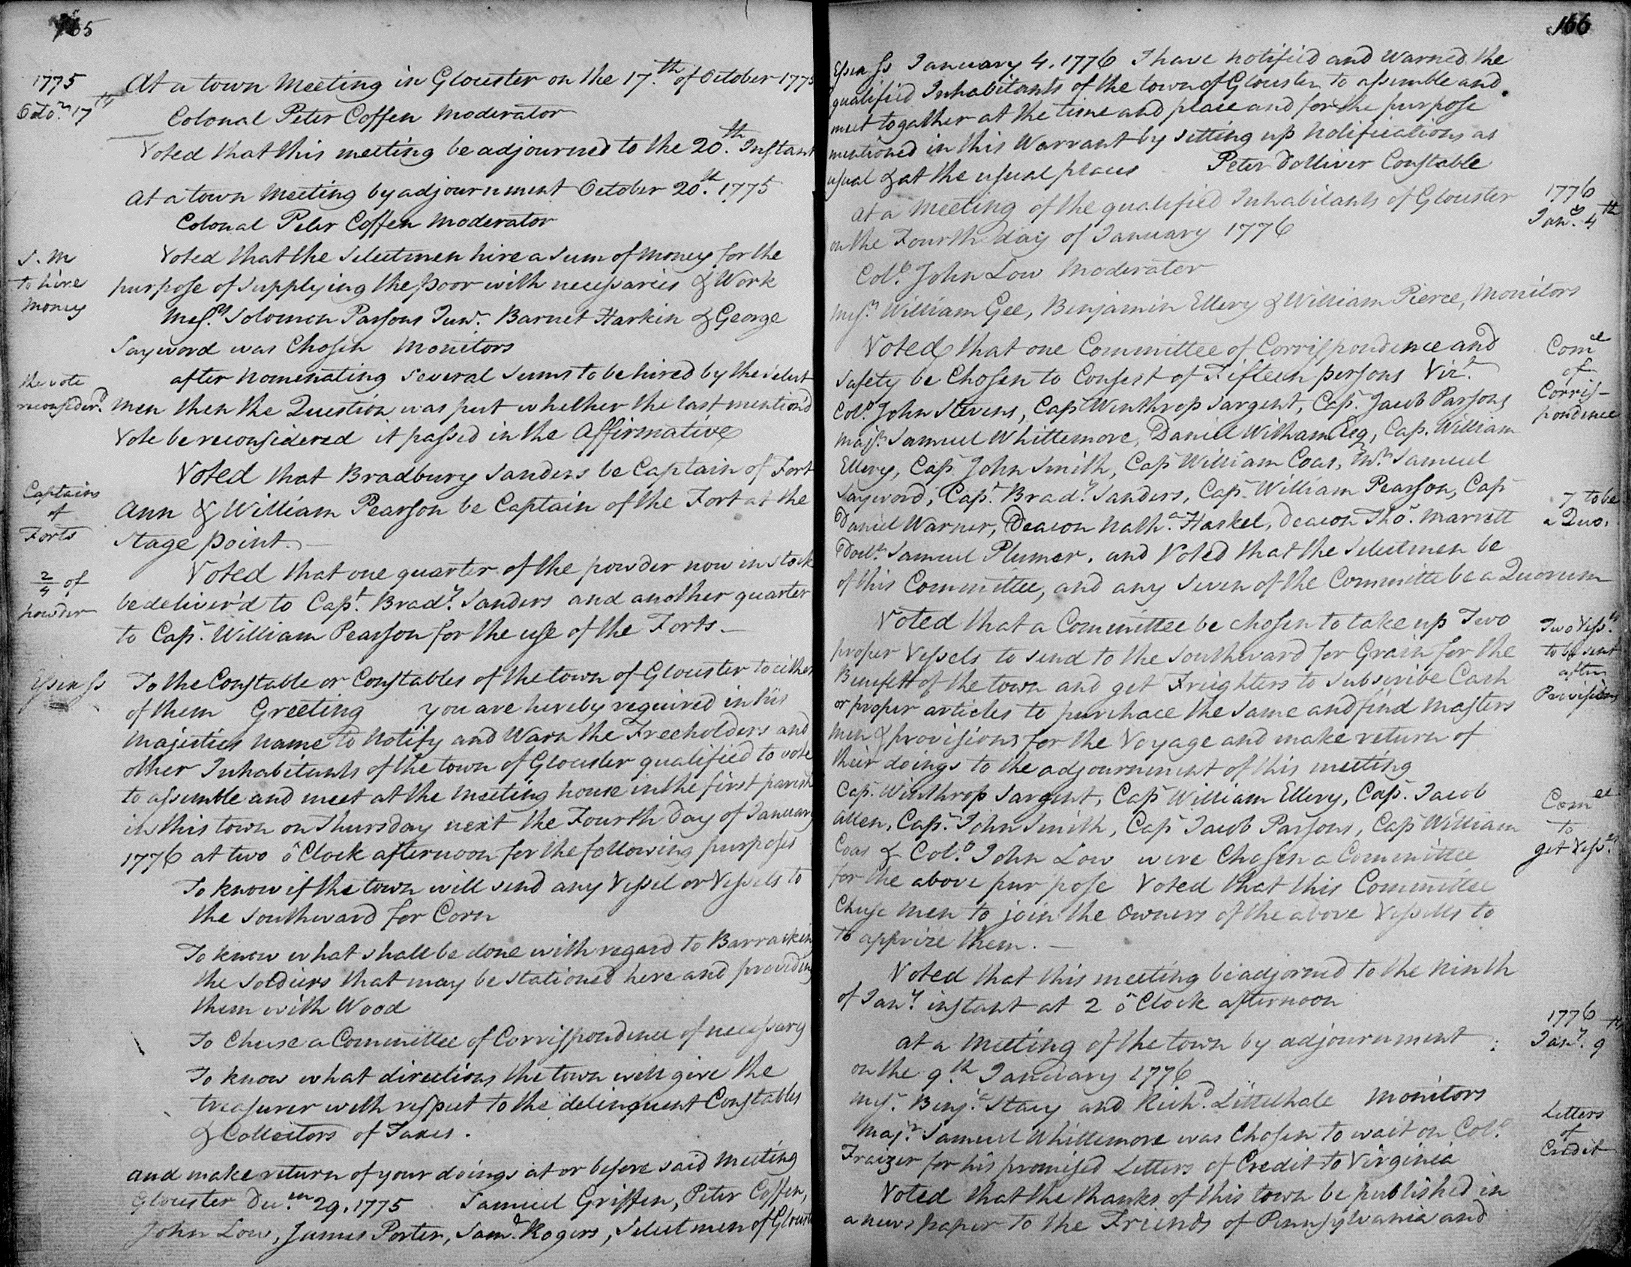 165
1775
Octo.r 17th
At a town Meeting in Glouster on the 17.th of October 1775
Colonal Peter Coffen Moderator
Voted that this meeting be adjourned to the 20.th Instant
At a town Meeting by adjournment October 20.th 1775
Colonal Peter Coffen Moderator
S. M
to hire
money
Voted that the Selectmen hire a Sum of Money for the
purpose of Supplying the poor with necessaries & Work
Mess.rs Solomon Parsons Jun.r Barnet Harkin & George
Sayword was Chosen Monitors
the vote
reconsider.d
after Nomenating Several Sums to be hired by the Select
men then the Question was put whether the last mention'd
Vote be reconsidered it passed in the Affirmative
Captains
of
Forts
Voted that Bradbury Sanders be Captain of Fort
Ann & William Pearson be Captain of the Fort at the
Stage point. —
2/4 of
powder
Voted that one quarter of the powder now in Stock
be deliver'd to Cap.t Brad.y Sanders and another quarter
to Cap.t William Pearson for the use of the Forts. —
Essex Ss
To the Constable or Constables of the town of Glouster to either
of them Greeting you are hereby required in his
Majesties name to Notify and Warn the Freeholders and
other Inhabitants of the town of Glouster qualified to vote
to assemble and meet at the Meeting house in the first parish
in this town on Thursday next the Fourth day of January
1776 at two o Clock afternoon for the following purposes
To know if the town will send any Vessel or Vessels to
the Southward for Corn
To know what shall be done with regard to Barracking
the Soldiers that may be Stationed here and providing
them with Wood
To Chuse a Committee of Corrisspondence if necessary
To know what directions the town will give the
treasurer with respect to the delinquent Constables
& Collectors of Taxes.
and make return of your doings at or before said Meeting
Glouster Dec.m 29, 1775 Samuel Griffen, Peter Coffen,
John Low, James Porter, Sam.l Rogers, Selectmen of Glouster
166
Essex Ss January 4. 1776 I have notified and Warned the
qualified Inhabitants of the town of Glouster to assemble and
meet together at the time and place and for the purpose
mentioned in this Warrant by Setting up Notifications as
usual & at the usual places Peter Dolliver Constable
1776
Jan.y 4th
At a Meeting of the qualified Inhabitants of Glouster
on the Fourth day of January 1776
Col.o John Low Moderator
Mess.rs William Gee, Benjamin Ellery & William Pierce, Monitors
Com.ee
of
Corris-
pondence
Voted that one Committee of Corrisspondence and
Safety be Chosen to Consest of Fifteen persons Viz.t
Col.o John Stevens, Cap.t Winthrop Sargent, Cap.t Jacob Parsons
Maj.r Samuel Whittemore, Daniel Witham Esq, Cap.t William
Ellery, Cap.t John Smith, Cap.t William Coas, M.r Samuel
Sayword, Cap.t Brad.y Sanders, Cap.t William Pearson, Cap.t
7 to be
a Quo.
Daniel Warner, Deacon Nath.a Haskel, Deacon Tho.s Marrett
Doct.r Samuel Plumer. and Voted that the Selectmen be
of this Committee, and any Seven of the Committe be a Quorum
Two Vess.ls
to be sent
after
Provisions
Voted that a Committee be chosen to take up Two
proper Vessels to send to the Southward for Grain for the
Benefett of the town and get Freighters to Subscribe Cash
or proper articles to purchace the Same and find Masters
men & provisions for the Voyage and make return of
their doings to the adjournment of this meeting
Com.ee
to
get Vess.ls
Cap.t Winthrop Sargent, Cap.t William Ellery, Cap.t Jacob
Allen, Cap.t John Smith, Cap.t Jacob Parsons, Cap.t William
Coas & Col.o John Low were Chosen a Committee
for the above purpose Voted that this Committee
Chuse men to join the Owners of the above Vessells to
to apprize them. —
Voted that this meeting be adjorned to the Ninth
of Jan.y instant at 2 o Clock afternoon
1776
Jan.y 9th
At a Meeting of the town by adjournment
on the 9.th January 1776
Mess.rs Benj.a Stacy and Rich.d Littelhale Monitors
Letters
of
Credit
Maj.r Samuel Whittemore was Chosen to wait on Col.o
Fraizer for his promised Letters of Credit to Virginia
Voted that the thanks of this town be published in
a news paper to the Friends of Pennsylvania and